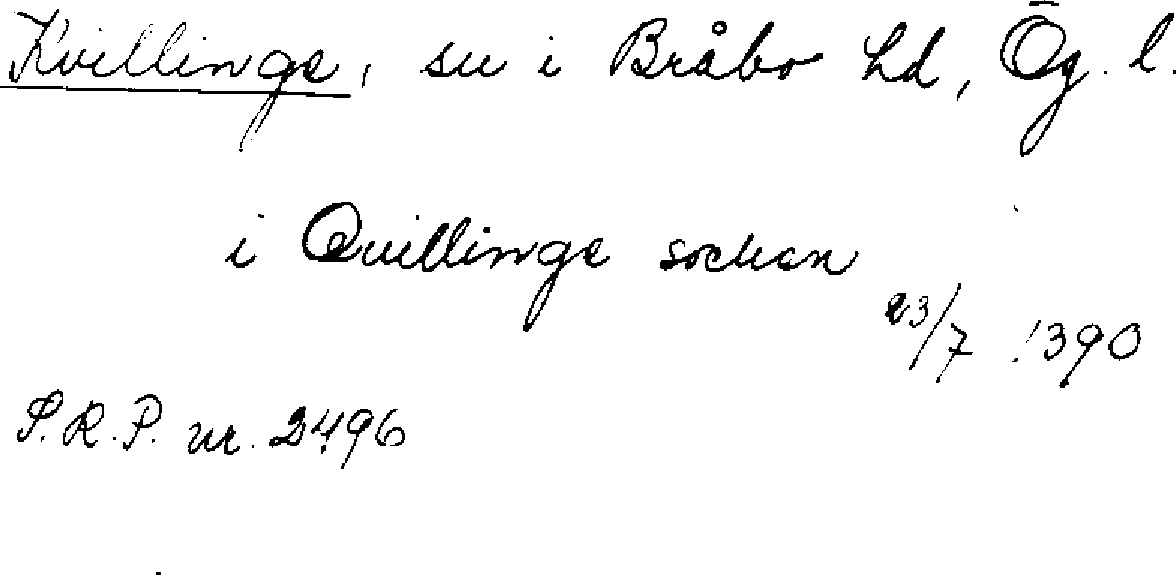 Kvillinge, sn i Bråbo hd, Ög. l.
i Quillinge sochan
23/7 1390
S.R.P. nr. 2496